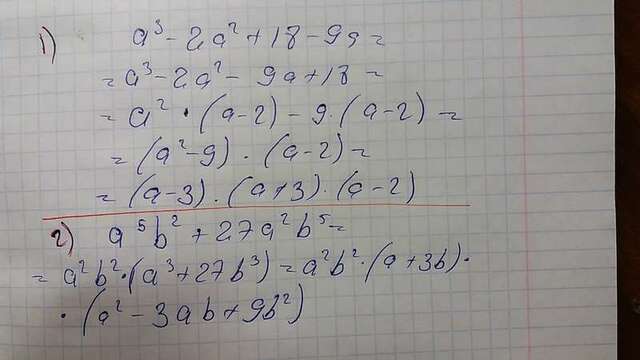 1) a³-2a²+18-9a=
=a³-2a²-9a+18=
=a²·(a-2)-9(a-2)=
=(a²-9)·(a-2)=
=(a-3)·(a+3)·(a-2)
2) a⁵b²+27a²b⁵=
=a²b²·(a³+27b³)=a²b²·(a+3b)·
·(a²-3ab+9b²)